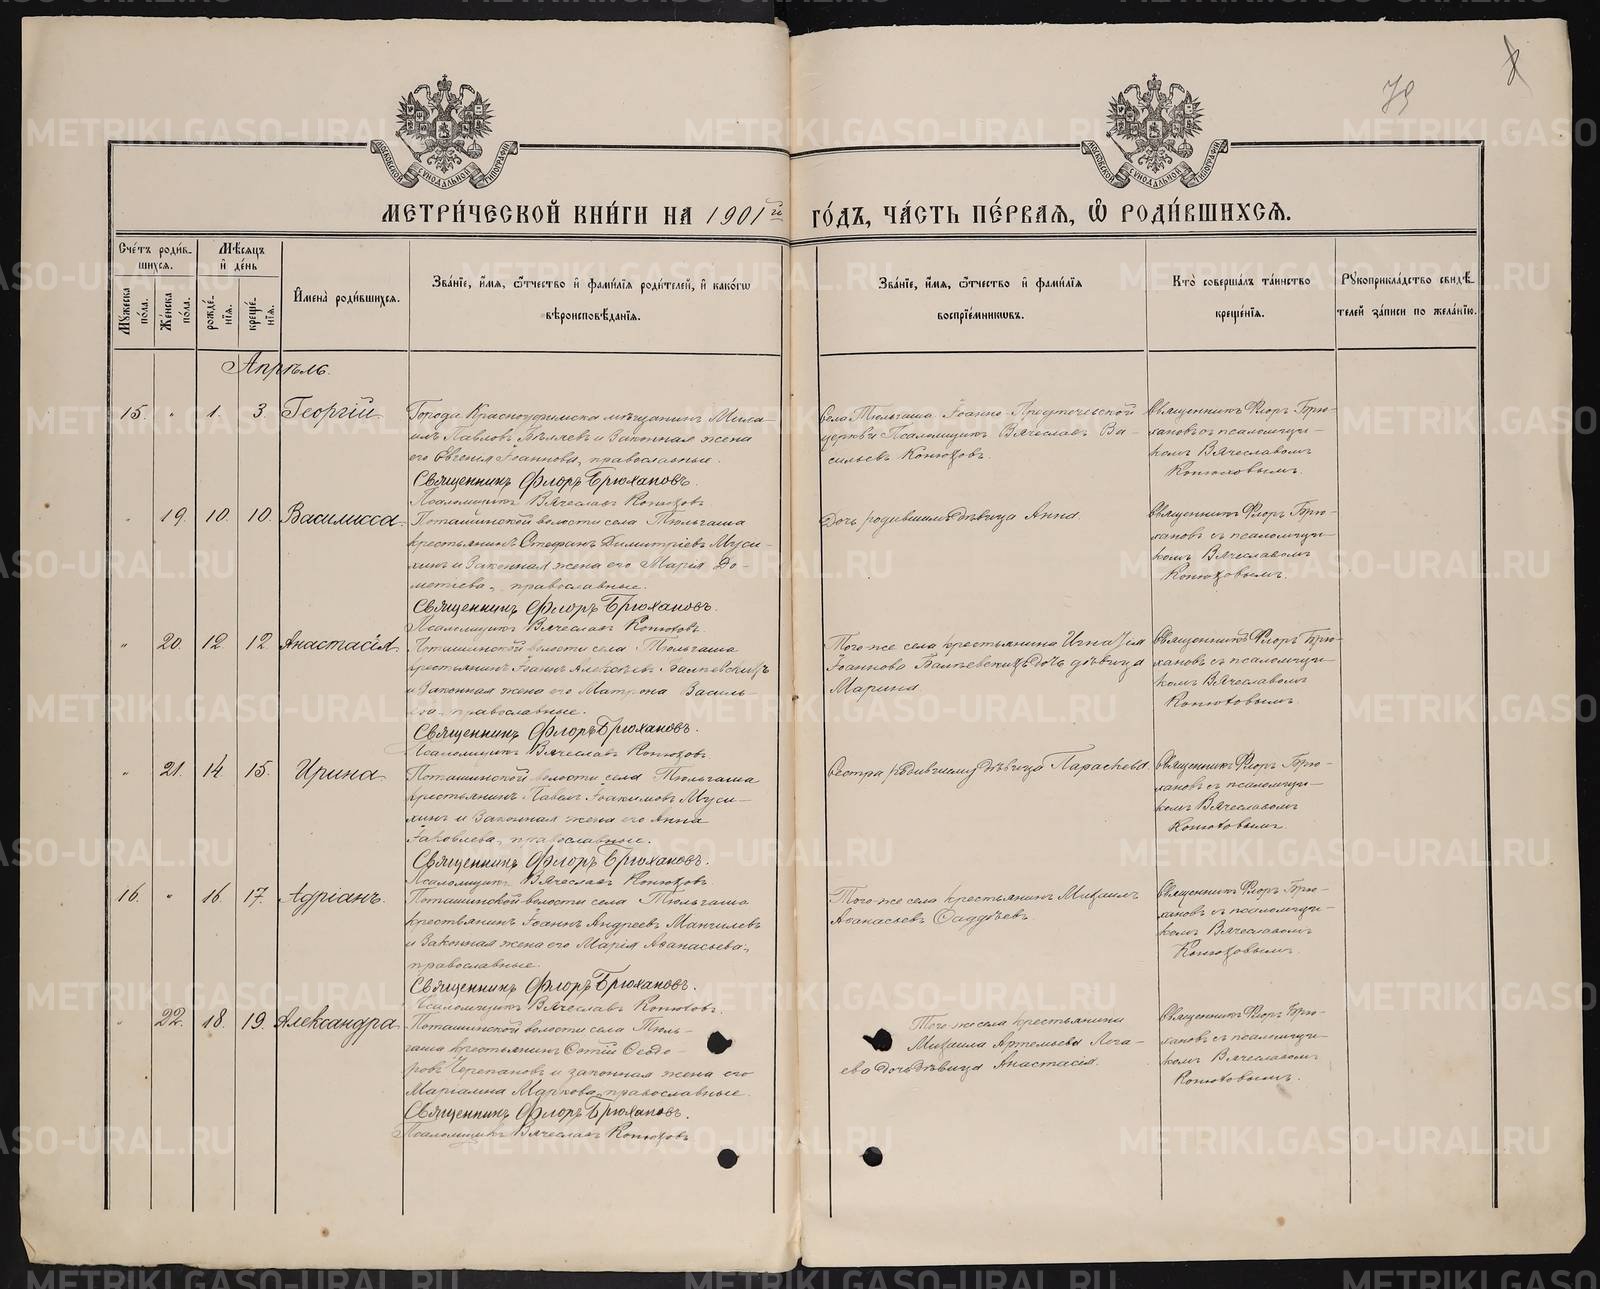 79
МОСКОВСКОЙ СѴНОДАЛЬНОЙ ТИПОГРАФІИ
МОСКОВСКОЙ СѴНОДАЛЬНОЙ ТИПОГРАФІИ
МЕТРИ́ЧЕСКОЙ КНИ́ГИ НА 1901й ГО́ДЪ, ЧА́СТЬ ПЕ́РВАѦ, Ѽ РОДИ́ВШИХСѦ.
Сче́тъ роди́в-
шихсѧ.
Мѣ́сѧцъ
и҆ де́нь
Мꙋ́жеска
по́ла.
Же́нска
по́ла.
рожде́-
нїѧ.
креще́-
нїѧ.
И҆мена̀ роди́вшихсѧ.
Зва́нїе, и҆́мѧ, ѻ҆́тчество и҆ фами́лїѧ роди́телей, и҆ како́гѡ
вѣроисповѣ́данїѧ.
Зва́нїе, и҆́мѧ, ѻ҆́тчество и҆ фами́лїѧ
воспрїе́мникѡвъ.
Кто̀ соверша́лъ та́инство
креще́нїѧ.
Рꙋкоприкла́дство свидѣ́-
телей за́писи по жела́нїю.
Апрѣль.
15. " 1. 3. Георгій
Города Красноуфимска мѣщанинъ Михаи-
илъ Павловъ Бѣляевъ и законная жена
его Евгенія Іоаннова, православные.
Священникъ Флоръ Брюхановъ.
Псаломщикъ Вячеславъ Конюховъ
Села Тюльгаша Іоанно-Предтечевской
церкви Псаломщикъ Вячеславъ Ва-
сильевъ Конюховъ.
Священникъ Флоръ Брю-
хановъ съ псаломщи-
комъ Вячеславомъ
Конюховымъ.
" 19. 10. 10. Василисса
Поташинской волости села Тюльгаша
крестьянинъ Стефанъ Димитріевъ Муси-
хинъ и законная жена его Марія До-
метіева, православные.
Священникъ Флоръ Брюхановъ.
Псаломщикъ Вячеславъ Конюховъ.
Дочь родившихъ дѣвица Анна.
Священникъ Флоръ Брю-
хановъ съ псаломщи-
комъ Вячеславомъ
Конюховымъ.
" 20. 12. 12 Анастасія
Поташинской волости села Тюльгаша
крестьянинъ Іоаннъ Алексѣевъ
и законная жена его Матрона Василь-
ева, православные.
Священникъ Флоръ Брюхановъ.
Псаломщикъ Вячеславъ Конюховъ.
Того-же села крестьянина Игнатія
Іоаннова дочь дѣвица
Марина
Священникъ Флоръ Брю-
хановъ съ псаломщи-
комъ Вячеславомъ
Конюховымъ.
" 21. 14 15. Ирина
Поташинской волости села Тюльгаша
крестьянинъ Павелъ Іоакимовъ Муси-
хинъ и законная жена его Анна
Іаковлева, православные.
Священникъ Флоръ Брюхановъ.
Псаломщикъ Вячеславъ Конюховъ.
Сестра родившему дѣвица Параскева.
Священникъ Флоръ Брю-
хановъ съ псаломщи-
комъ Вячеславомъ
Конюховымъ
16. " 16. 17. Адріанъ.
Поташинской волости села Тюльгаша
крестьянинъ Іоаннъ Андреевъ Мангилевъ
и законная жена его Марія Аѳанасьева,
православные.
Священникъ Флоръ Брюхановъ.
Псаломщикъ Вячеславъ Конюховъ.
Того-же села крестьянинъ Михаилъ
Аѳанасьевъ Ѳаддѣевъ
Священникъ Флоръ Брю-
хановъ съ псаломщи-
комъ Вячеславомъ
Конюховымъ.
" 22. 18. 19. Александра
Поташинской волости села Тюль-
гаша крестьянинъ Сотій Ѳеодо-
ровъ Черепановъ и законная жена его
Маріамна Маркова, православные.
Священникъ Флоръ Брюхановъ.
Псаломщикъ Вячеславъ Конюховъ
Того же села крестьянина
Михаила Артемьева
дочь дѣвица Анастасія.
Священникъ Флоръ Брю-
хановъ съ псаломщи-
комъ Вячеславомъ
Конюховымъ.
METRIKI.GASO-URAL.RU